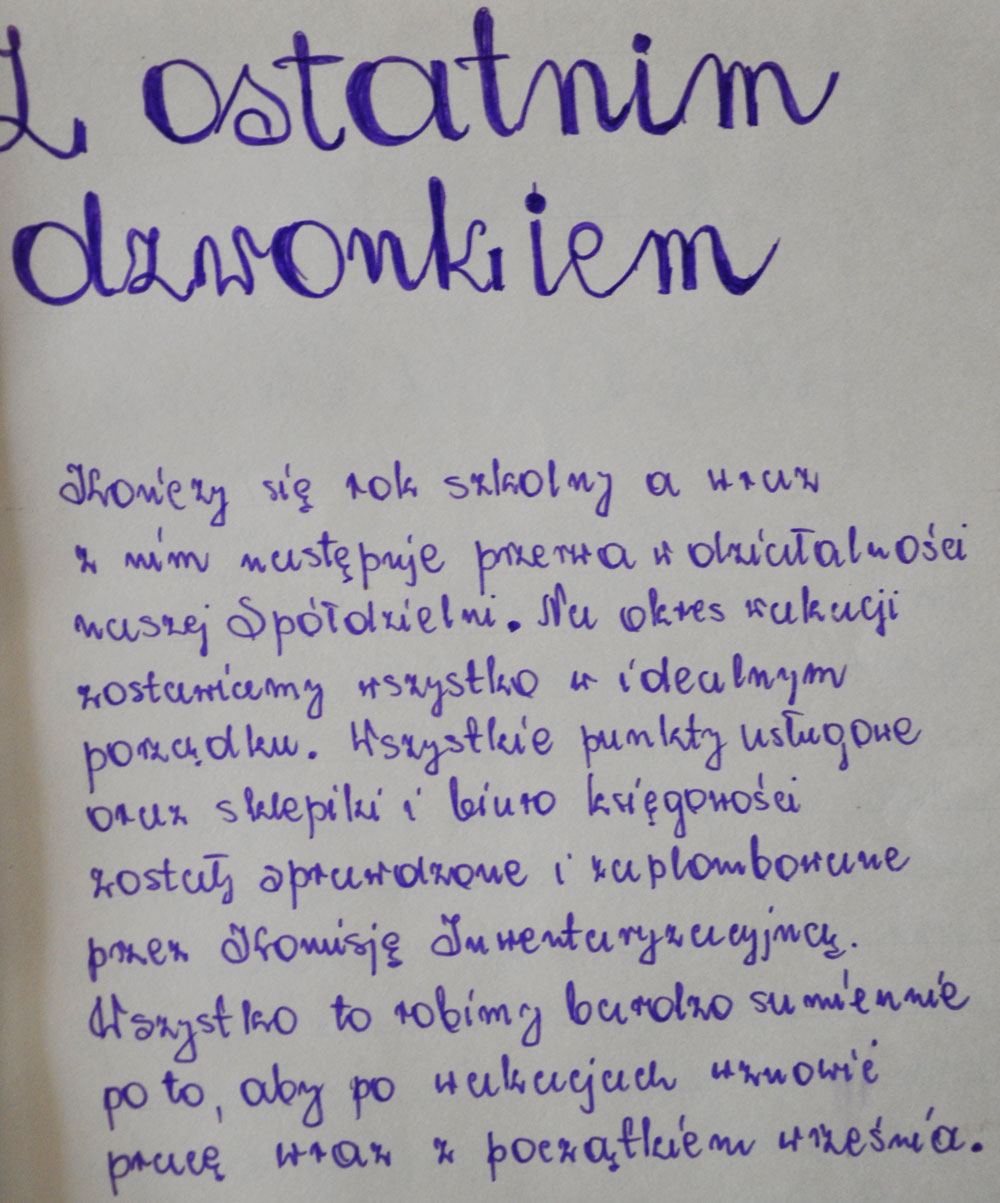 Z ostatnim
dzwonkiem
Kończy się rok szkolny a wraz
z nim następuje przerwa w działalności
naszej Spółdzielni. Na okres wakacji
zostawiamy wszystko w idealnym
porządku. Wszystkie punkty usługowe
oraz sklepiki i biuro księgowości
zostały sprawdzone i zaplombowane
przez Komisję Inwentaryzacyjną.
Wszystko to robimy bardzo sumiennie
po to, aby po wakacjach wznowić
pracę wraz z początkiem września.